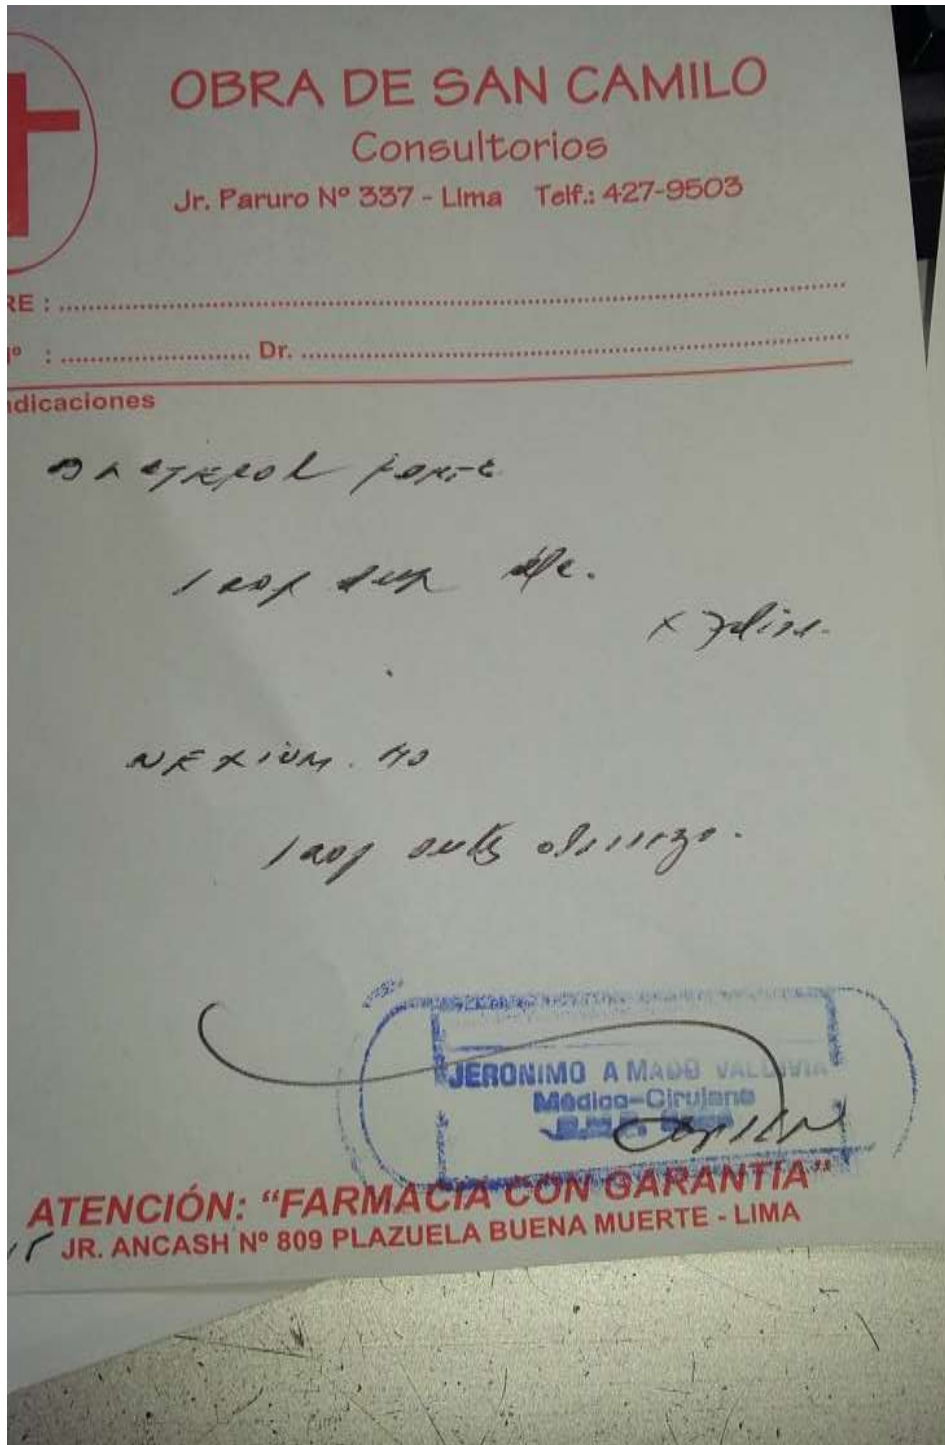 OBRA DE SAN CAMILO
Consultorios
Jr. Paruro Nº 337 - Lima Telf.: 427-9503
RE :
º : Dr.
dicaciones
forte
1 cap
x 7 días.
NEXIUM. 40
1 cap antes almuerzo.
JERONIMO A MADO VALDIVIA
Médico-Cirujano
ATENCIÓN: “FARMACIA CON GARANTÍA”
JR. ANCASH Nº 809 PLAZUELA BUENA MUERTE - LIMA